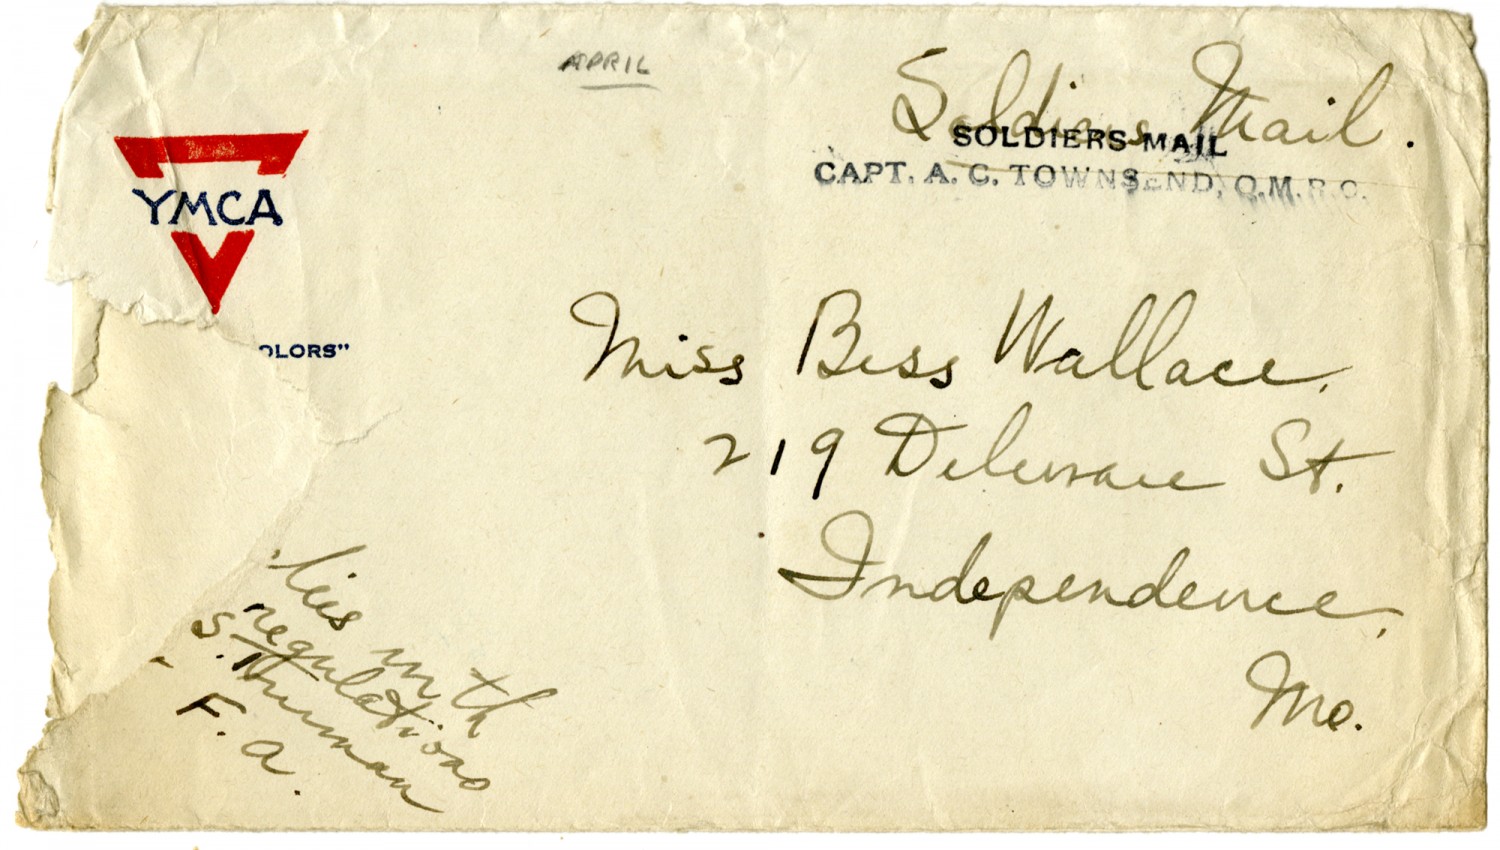 APRIL
Soldiers Mail.
SOLDIERS MAIL
CAPT. A. C. TOWNSEND, Q.M.R.C.
YMCA
OLORS"
Miss Bess Wallace,
219 Delaware St.
Independence,
Mo.
lies with
regulations
S. Truman
F. A.